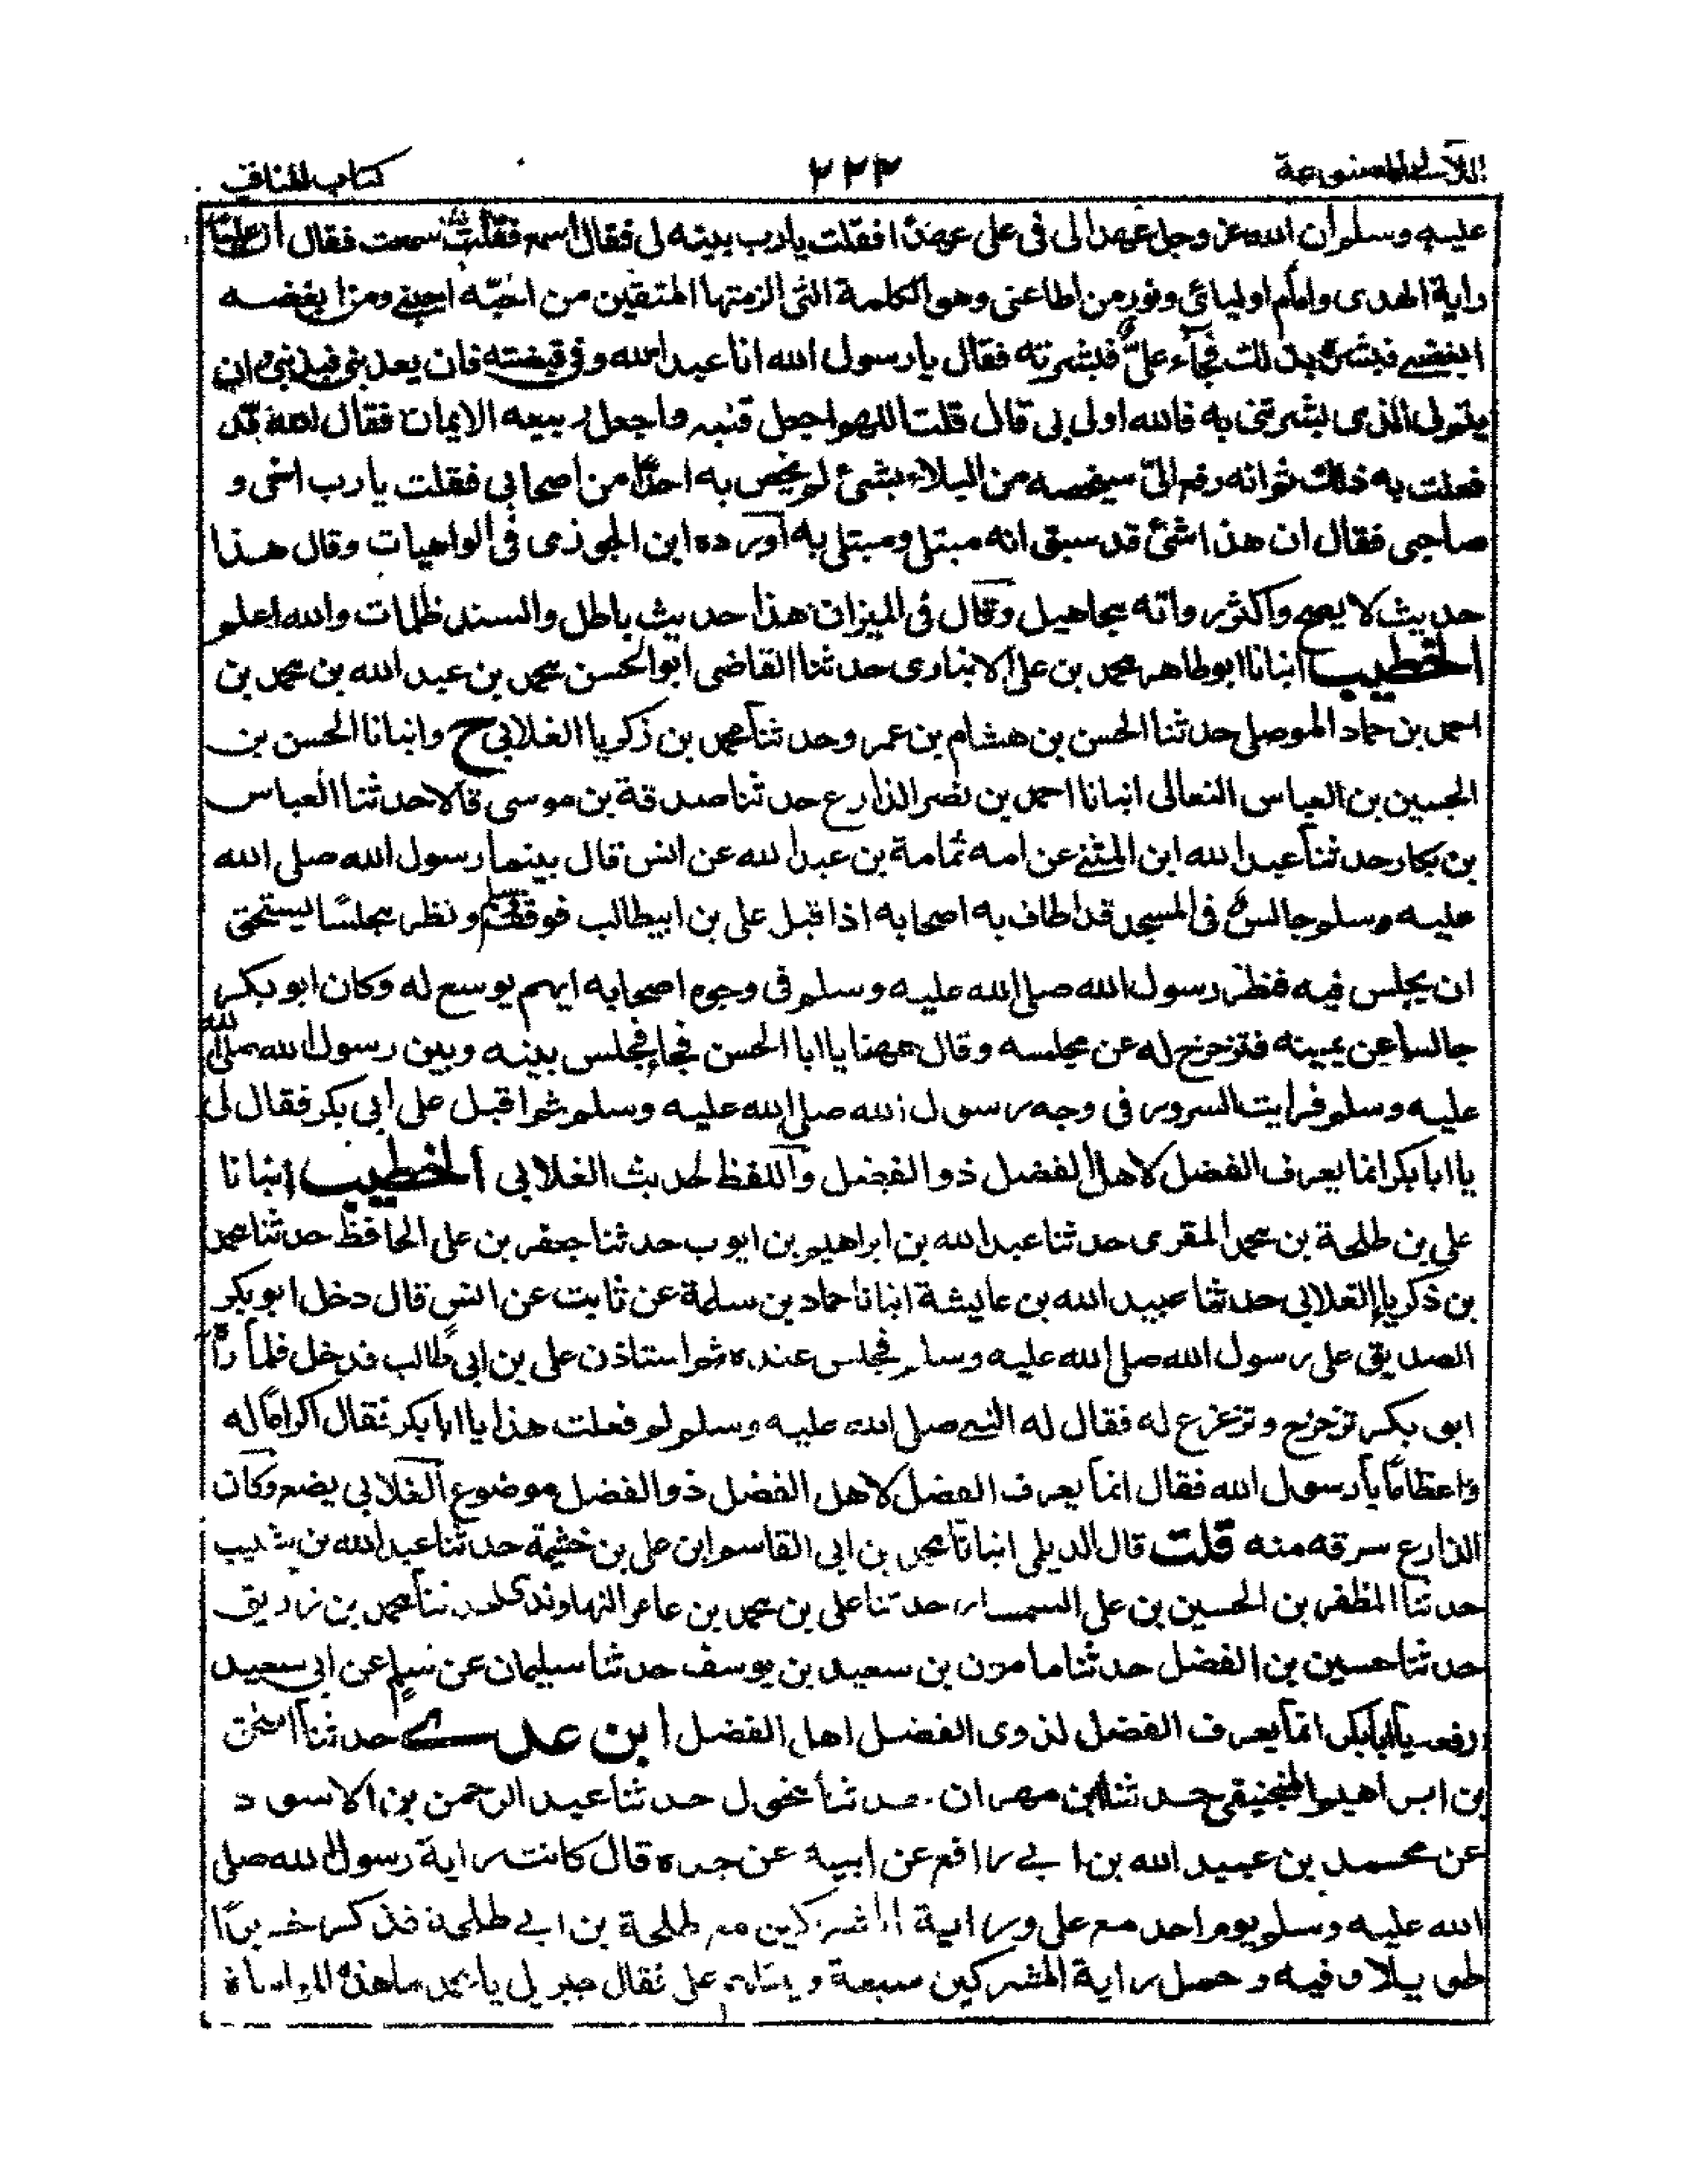 اللآلى المصنوعة ٢٢٣ كتاب المناقب
عليه وسلم ان الله عز وجل عهد الى فى على عهدا فقلت يا رب بينه لى فقال اسمع فقلت سمعت فقال ان عليا
راية الهدى وامام اوليائى ونور من اطاعنى وهو الكلمة التى الزمتها المتقين من احبّه احبنى ومن ابغضه
ابغضنى فبشره بذلك فجآء علىّ فبشرته فقال يا رسول الله انا عبد الله وفى قبضته فان يعذبنى فبذنبى وان
يتم لى الذى بشرتنى به فالله اولى بى قال قلت اللهم اجعل قلبه واجعل ربيعه الايمان فقال الله قد
فعلت به ذلك ثم انه رفع الىّ سيخصه من البلاء بشئ لم يخص به احدًا من اصحابى فقلت يا رب اخى و
صاحبى فقال ان هذا شئ قد سبق انه مبتلى ومبتلى به اورده ابن الجوزى فى الواهيات وقال هذا
حديث لا يصح واكثر رواته مجاهيل وقال فى الميزان هذا حديث باطل والسند ظلمات والله اعلم
الخطيب انبانا ابو طاهر محمد بن على الانبارى حدثنا القاضى ابو الحسن محمد بن عبد الله بن محمد بن
احمد بن حماد الموصلى حدثنا الحسن بن هشام بن عمر وحدثنا محمد بن زكريا الغلابى ح وانبانا الحسن بن
الحسين بن العباس النعالى انبانا احمد بن نصر الذارع حدثنا صدقة بن موسى قالا حدثنا العباس
بن بكار حدثنا عبد الله ابن المثنى عن امه ثمامة بن عبد الله عن انس قال بينما رسول الله صلى الله
عليه وسلم جالس فى المسجد قد اطاف به اصحابه اذ اقبل على بن ابيطالب فوقف فسلم ونظر مجلسًا يستحق
ان يجلس فيه فنظر رسول الله صلى الله عليه وسلم فى وجوه اصحابه ايهم يوسع له وكان ابو بكر
جالسا عن يمينه فتزحزح له عن مجلسه وقال ههنا يا ابا الحسن فجاء فجلس بينه وبين رسول الله صلى الله
عليه وسلم فرايت السرور فى وجه رسول الله صلى الله عليه وسلم ثم اقبل على ابى بكر فقال لى
يا ابا بكر انما يعرف الفضل لاهل الفضل ذو الفضل واللفظ لحديث الغلابى الخطيب انبانا
على بن طلحة بن محمد المقرى حدثنا عبد الله بن ابراهيم بن ايوب حدثنا جعفر بن على الحافظ حدثنا محمد
بن زكريا الغلابى حدثنا عبيد الله بن عايشة انبانا حماد بن سلمة عن ثابت عن انس قال دخل ابو بكر
الصديق على رسول الله صلى الله عليه وسلم فجلس عنده ثم استاذن على بن ابى طالب فدخل فلما رآه
ابو بكر تزحزح وتزعزع له فقال له النبى صلى الله عليه وسلم لم فعلت هذا يا ابا بكر فقال اكرامًا له
واعظامًا يا رسول الله فقال انما يعرف الفضل لاهل الفضل ذو الفضل موضوع الغلابى يضع وكان
الذارع سرقه منه قلت قال الديلمى انبانا محمد بن ابى القاسم ابن على بن خشيمة حدثنا عبد الله بن شبيب
حدثنا المظفر بن الحسين بن على السمسار حدثنا على بن محمد بن عامر النهاوندى حدثنا محمد بن زريق
حدثنا حسين بن الفضل حدثنا مامون بن سعيد بن يوسف حدثنا سليمان عن سليم عن ابى سعيد
رفعه يا ابا بكر انما يعرف الفضل لذوى الفضل اهل الفضل ابن عدى حدثنا اسحق
بن ابراهيم المنجنيقى حدثنا ابن مهران حدثنا مخول حدثنا عبد الرحمن بن الاسود
عن محمد بن عبيد الله بن ابى رافع عن ابيه عن جده قال كانت راية رسول الله صلى
الله عليه وسلم يوم احد مع على وراية المشركين مع طلحة بن ابى طلحة فذكر خبرًا
طويلا وفيه وحمل راية المشركين سبعة ويقتلهم على فقال جبريل يا محمد ما هذه المواساة